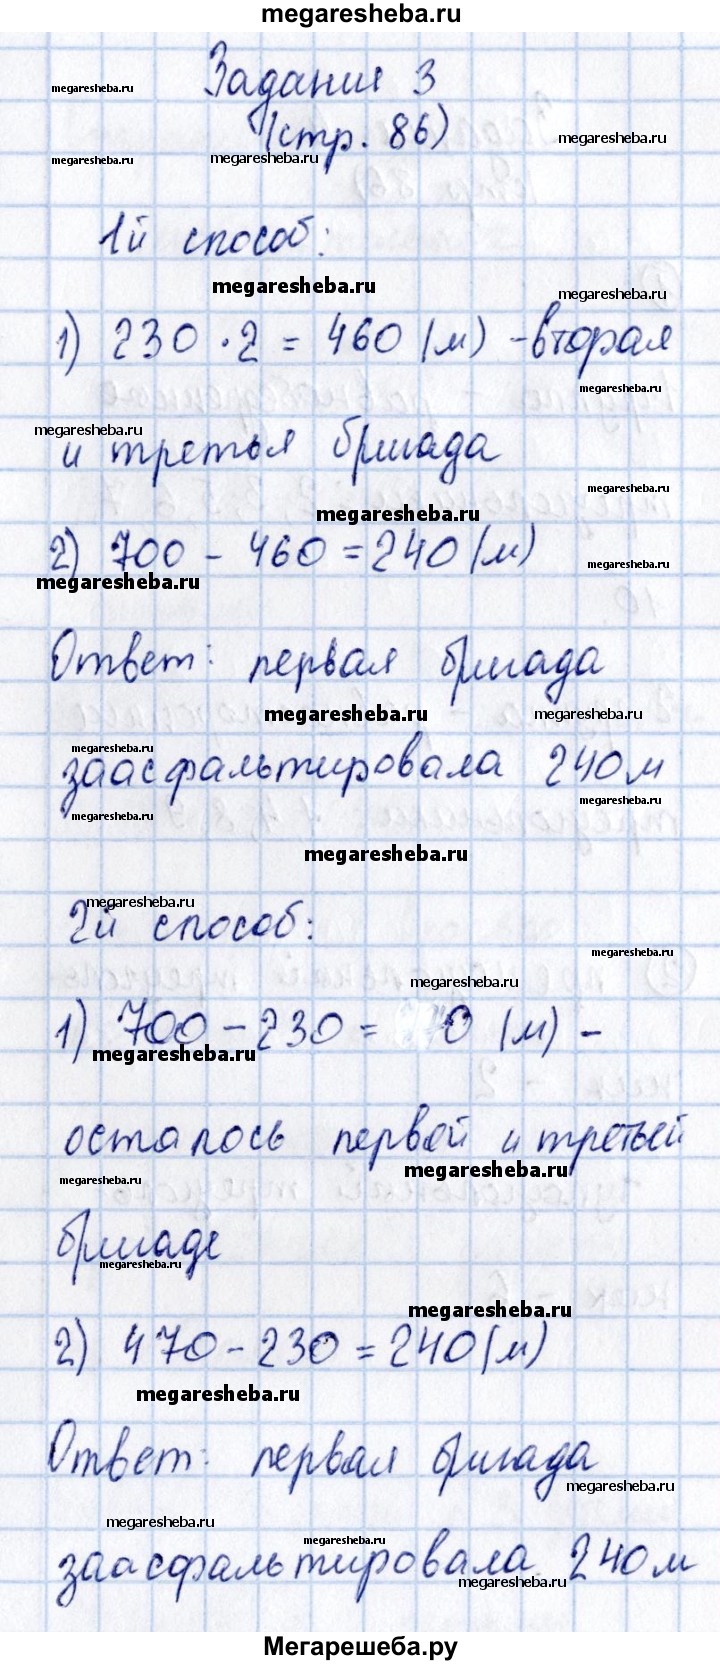 megaresheba.ru
Задание 3
megaresheba.ru
(стр. 86)
megaresheba.ru
megaresheba.ru
megaresheba.ru
1й способ:
megaresheba.ru
megaresheba.ru
1) 230 · 2 = 460 (м) - вторая
megaresheba.ru
megaresheba.ru
и третья бригада
megaresheba.ru
megaresheba.ru
2) 700 - 460 = 240 (м)
megaresheba.ru
megaresheba.ru
Ответ: первая бригада
megaresheba.ru
megaresheba.ru
megaresheba.ru
заасфальтировала 240 м
megaresheba.ru
megaresheba.ru
megaresheba.ru
megaresheba.ru
2й способ:
megaresheba.ru
megaresheba.ru
1) 700 - 230 = 0 (м) -
megaresheba.ru
осталось первой и третьей
megaresheba.ru
megaresheba.ru
бригаде
megaresheba.ru
megaresheba.ru
2) 470 - 230 = 240 (м)
megaresheba.ru
Ответ: первая бригада
megaresheba.ru
megaresheba.ru
megaresheba.ru
заасфальтировала 240 м
megaresheba.ru
Мегарешеба.ру